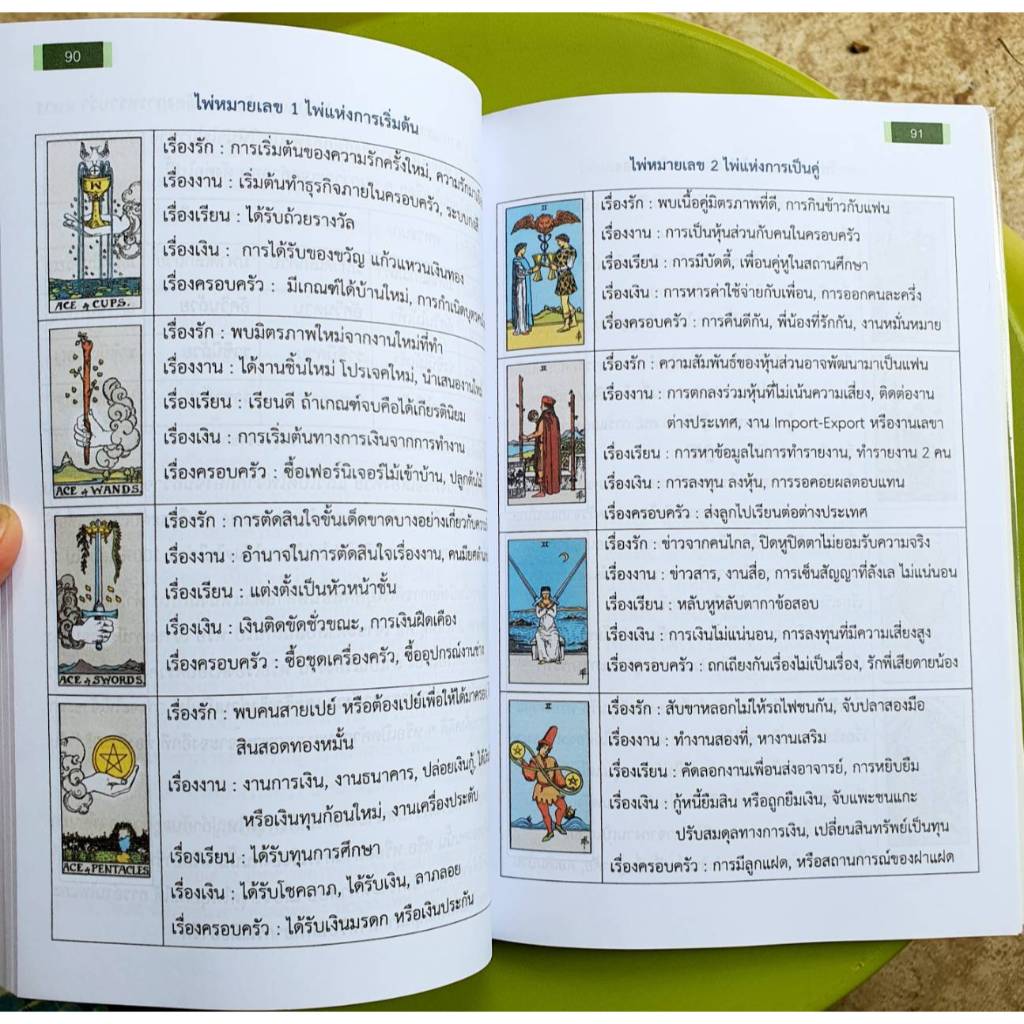 90
ไพ่หมายเลข 1 ไพ่แห่งการเริ่มต้น
ACE of CUPS.
เรื่องรัก : การเริ่มต้นของความรักครั้งใหม่,
เรื่องงาน : เริ่มต้นทำธุรกิจภายในครอบครัว,
เรื่องเรียน : ได้รับถ้วยรางวัล
เรื่องเงิน : การได้รับของขวัญ แก้วแหวนเงินทอง
เรื่องครอบครัว : มีเกณฑ์ได้บ้านใหม่,
ACE of WANDS.
เรื่องรัก : พบมิตรภาพใหม่จากงานใหม่ที่ทำ
เรื่องงาน : ได้งานชิ้นใหม่ โปรเจคใหม่,
เรื่องเรียน : เรียนดี ถ้าเกณฑ์จบคือได้เกียรตินิยม
เรื่องเงิน : การเริ่มต้นทางการเงินจากการทำงาน
เรื่องครอบครัว : ซื้อเฟอร์นิเจอร์ไม้เข้าบ้าน, ปลูกต้นไม้
ACE of SWORDS.
เรื่องรัก : การตัดสินใจขั้นเด็ดขาดบางอย่างเกี่ยวกับ
เรื่องงาน : อำนาจในการตัดสินใจเรื่องงาน,
เรื่องเรียน : แต่งตั้งเป็นหัวหน้าชั้น
เรื่องเงิน : เงินติดขัดชั่วขณะ, การเงินฝืดเคือง
เรื่องครอบครัว : ซื้อชุดเครื่องครัว, ซื้ออุปกรณ์งานช่าง
ACE of PENTACLES
เรื่องรัก : พบคนสายเปย์ หรือต้องเปย์เพื่อให้ได้มาครอง
สินสอดทองหมั้น
เรื่องงาน : งานการเงิน, งานธนาคาร, ปล่อยเงินกู้,
หรือเงินทุนก้อนใหม่, งานเครื่องประดับ
เรื่องเรียน : ได้รับทุนการศึกษา
เรื่องเงิน : ได้รับโชคลาภ, ได้รับเงิน, ลาภลอย
เรื่องครอบครัว : ได้รับเงินมรดก หรือเงินประกัน
91
ไพ่หมายเลข 2 ไพ่แห่งการเป็นคู่
II
เรื่องรัก : พบเนื้อคู่มิตรภาพที่ดี, การกินข้าวกับแฟน
เรื่องงาน : การเป็นหุ้นส่วนกับคนในครอบครัว
เรื่องเรียน : การมีบัดดี้, เพื่อนคู่หูในสถานศึกษา
เรื่องเงิน : การหารค่าใช้จ่ายกับเพื่อน, การออกคนละครึ่ง
เรื่องครอบครัว : การคืนดีกัน, พี่น้องที่รักกัน, งานหมั้นหมาย
II
เรื่องรัก : ความสัมพันธ์ของหุ้นส่วนอาจพัฒนามาเป็นแฟน
เรื่องงาน : การตกลงร่วมหุ้นที่ไม่เน้นความเสี่ยง, ติดต่องาน
ต่างประเทศ, งาน Import-Export หรืองานเลขา
เรื่องเรียน : การหาข้อมูลในการทำรายงาน, ทำรายงาน 2 คน
เรื่องเงิน : การลงทุน ลงหุ้น, การรอคอยผลตอบแทน
เรื่องครอบครัว : ส่งลูกไปเรียนต่อต่างประเทศ
II
เรื่องรัก : ข่าวจากคนไกล, ปิดหูปิดตาไม่ยอมรับความจริง
เรื่องงาน : ข่าวสาร, งานสื่อ, การเซ็นสัญญาที่ลังเล ไม่แน่นอน
เรื่องเรียน : หลับหูหลับตากาข้อสอบ
เรื่องเงิน : การเงินไม่แน่นอน, การลงทุนที่มีความเสี่ยงสูง
เรื่องครอบครัว : ถกเถียงกันเรื่องไม่เป็นเรื่อง, รักพี่เสียดายน้อง
II
เรื่องรัก : สับขาหลอกไม่ให้รถไฟชนกัน, จับปลาสองมือ
เรื่องงาน : ทำงานสองที่, หางานเสริม
เรื่องเรียน : คัดลอกงานเพื่อนส่งอาจารย์, การหยิบยืม
เรื่องเงิน : กู้หนี้ยืมสิน หรือถูกยืมเงิน, จับแพะชนแกะ
ปรับสมดุลทางการเงิน, เปลี่ยนสินทรัพย์เป็นทุน
เรื่องครอบครัว : การมีลูกแฝด, หรือสถานการณ์ของฝาแฝด